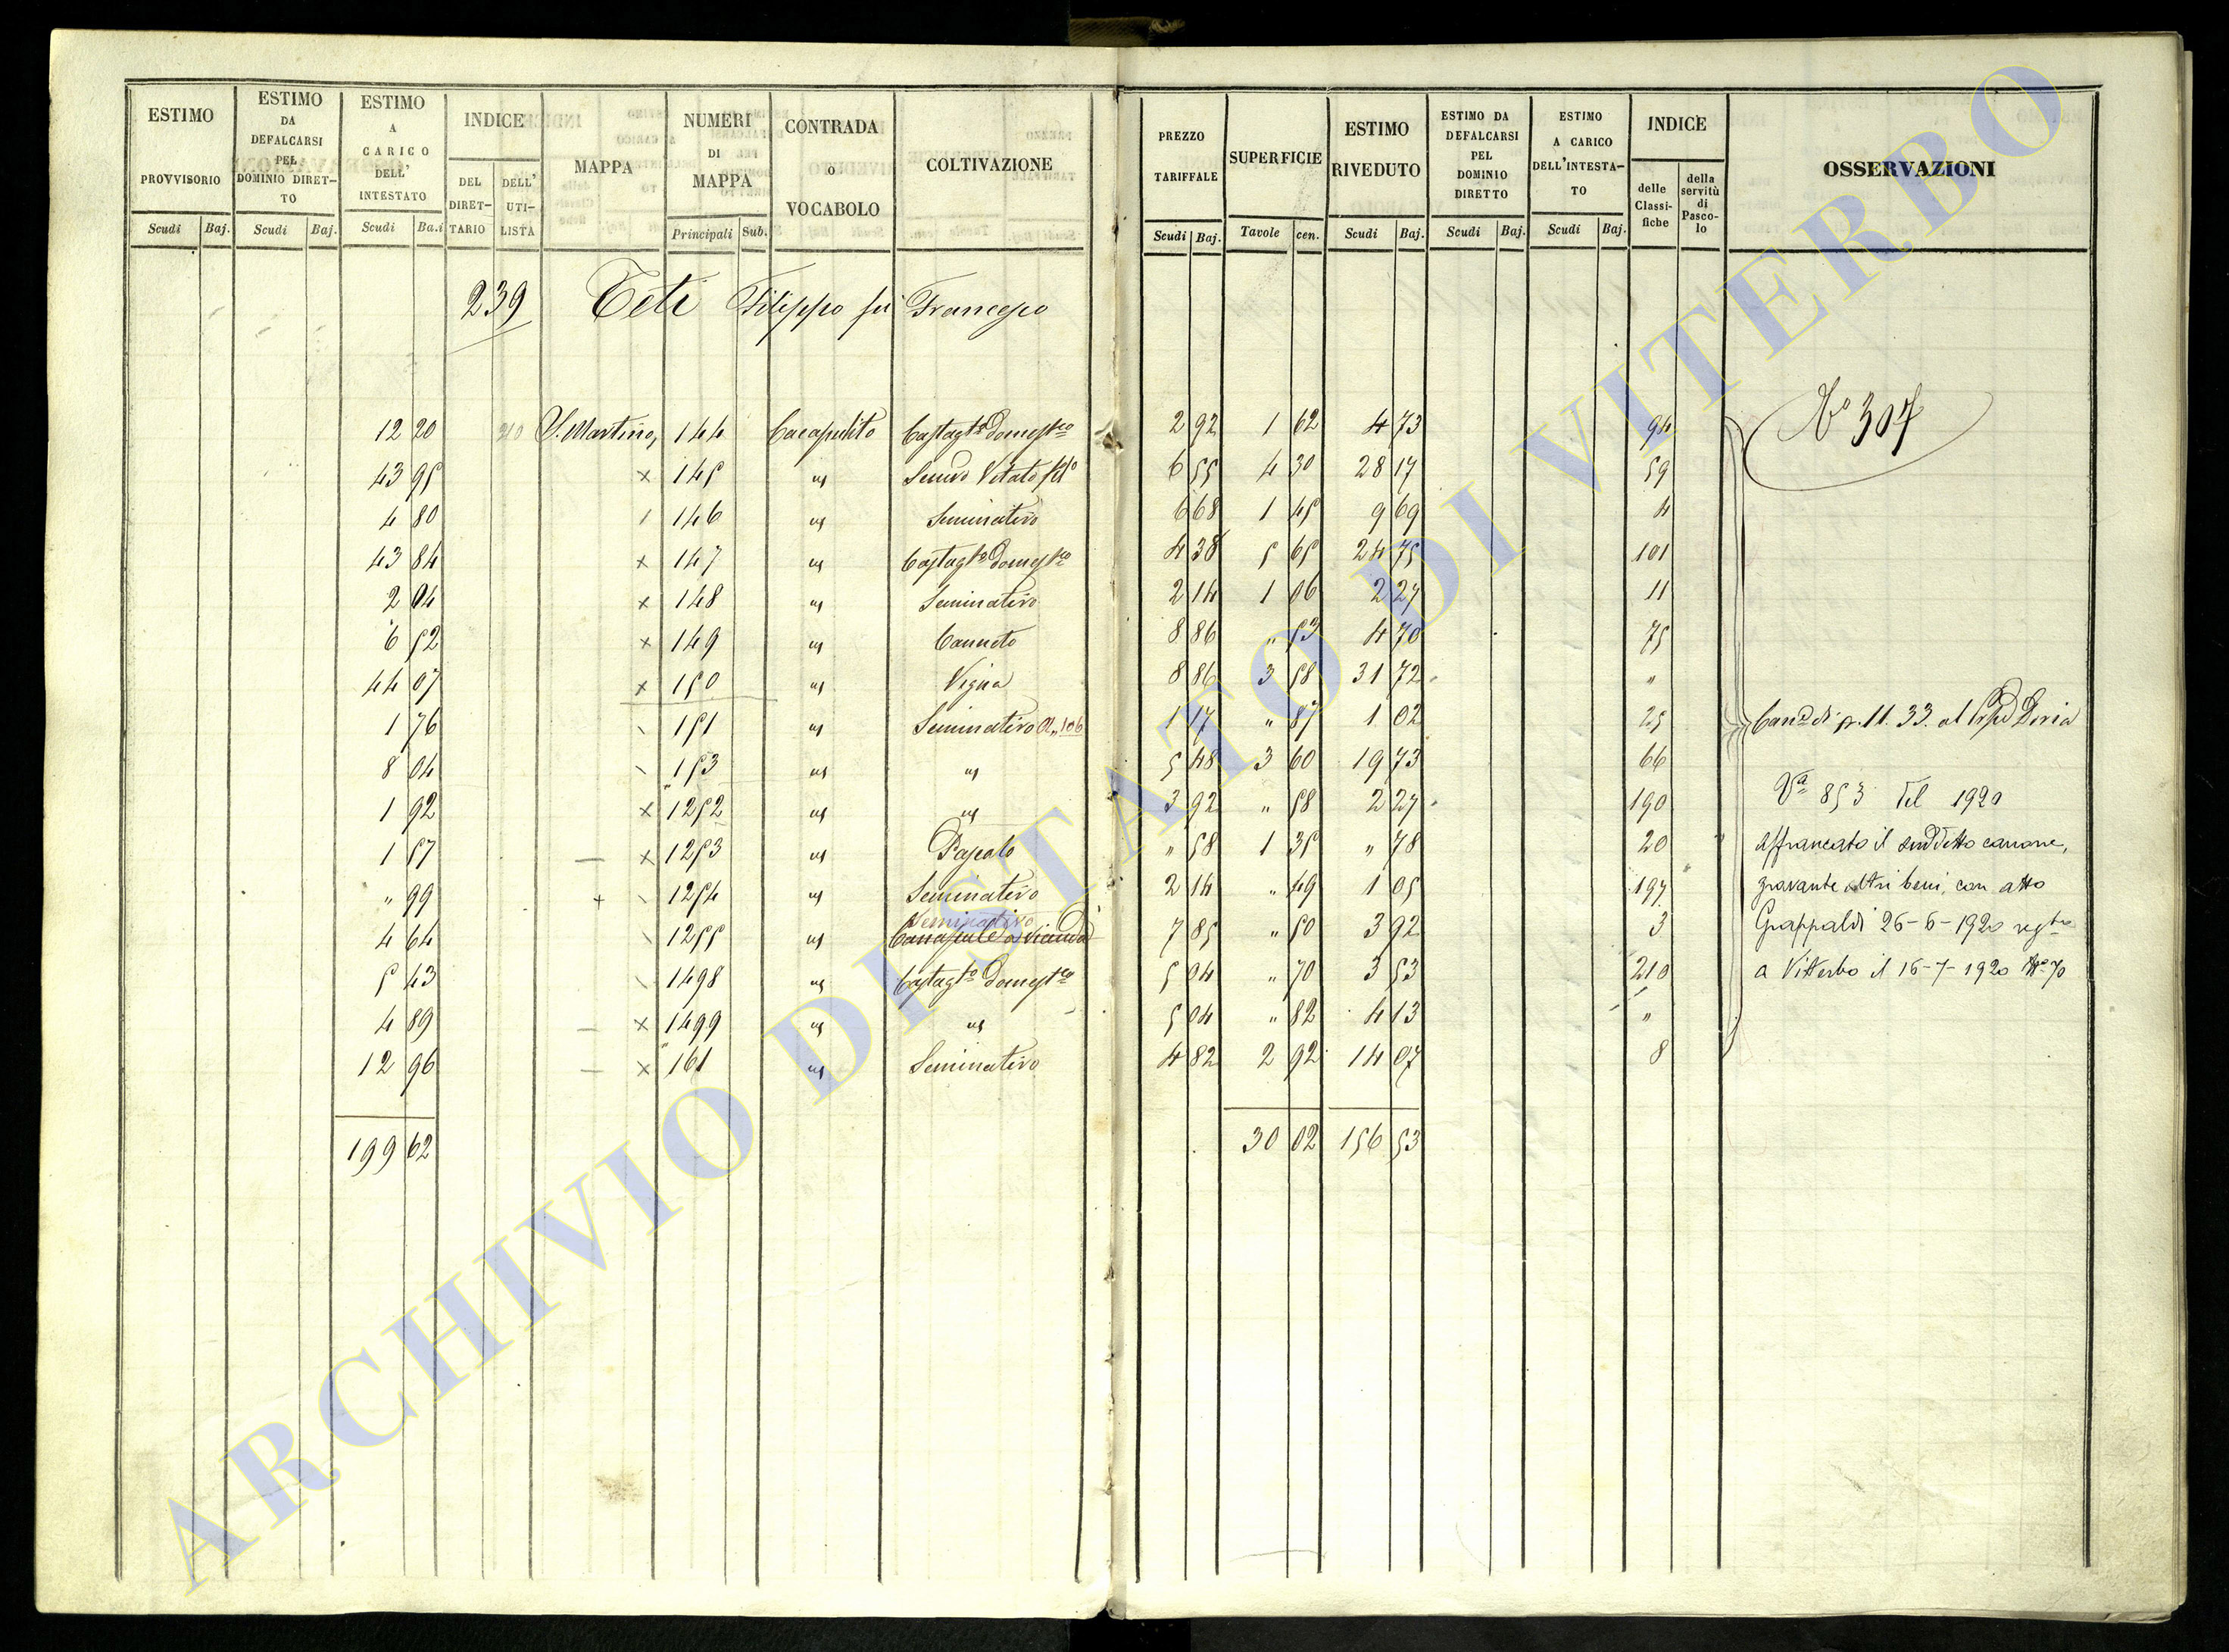 ESTIMO PROVVISORIO | ESTIMO DA DEFALCARSI PEL DOMINIO DIRETTO | ESTIMO A CARICO DELL' INTESTATO | INDICE DEL DIRETTARIO | DELL' UTILISTA | MAPPA | NUMERI DI MAPPA | CONTRADA o VOCABOLO | COLTIVAZIONE | PREZZO TARIFFALE | SUPERFICIE | ESTIMO RIVEDUTO | ESTIMO DA DEFALCARSI PEL DOMINIO DIRETTO | ESTIMO A CARICO DELL'INTESTATO | INDICE delle Classifiche | della servitù di Pascolo | OSSERVAZIONI
Scudi | Baj. | Scudi | Baj. | Scudi | Ba.i | Principali | Sub. | Scudi | Baj. | Tavole | cen. | Scudi | Baj. | Scudi | Baj. | Scudi | Baj.
239 Teti Filippo fu Francesco
No 307
12 20 | 210 | S. Martino, | 144 | Cacapulito | Castagto Domestco | 2 92 | 1 62 | 4 73 | 94
43 95 | x | 145 | " | Semivo Vitato | 6 55 | 4 30 | 28 17 | 59
4 80 | 146 | " | Seminativo | 6 68 | 1 45 | 9 69 | 4
43 84 | x | 147 | " | Castagto Domestco | 4 38 | 5 65 | 24 75 | 101
2 04 | x | 148 | " | Seminativo | 2 14 | 1 06 | 2 27 | 11
6 52 | x | 149 | " | Canneto | 8 86 | " 53 | 4 70 | 75
44 07 | x | 150 | " | Vigna | 8 86 | 3 58 | 31 72 | "
1 76 | 151 | " | Seminativo a 106 | 1 17 | " 87 | 1 02 | 25 | Canne di p. 11. 33. al Doria
8 04 | 153 | " | " | 5 48 | 3 60 | 19 73 | 66
1 92 | x | 1252 | " | " | 3 92 | " 58 | 2 27 | 190 | Va 853 del 1920
1 57 | — x | 1253 | " | Pascolo | " 58 | 1 35 | " 78 | 20 | affrancato il suddetto canone,
" 99 | + | 1254 | " | Seminativo | 2 14 | " 49 | 1 05 | 197 | gravante altri beni, con atto
Seminativo
4 64 | 1255 | " | 7 85 | " 50 | 3 92 | 3 | Grappaldi 26-6-1920 regto
5 43 | 1498 | " | Castagto Domestco | 5 04 | " 70 | 3 53 | 210 | a Viterbo il 16-7-1920 No 70
4 89 | — x | 1499 | " | " | 5 04 | " 82 | 4 13 | "
12 96 | — x | 161 | " | Seminativo | 4 82 | 2 92 | 14 07 | 8
199 62 | 30 02 | 156 53
ARCHIVIO DI STATO DI VITERBO